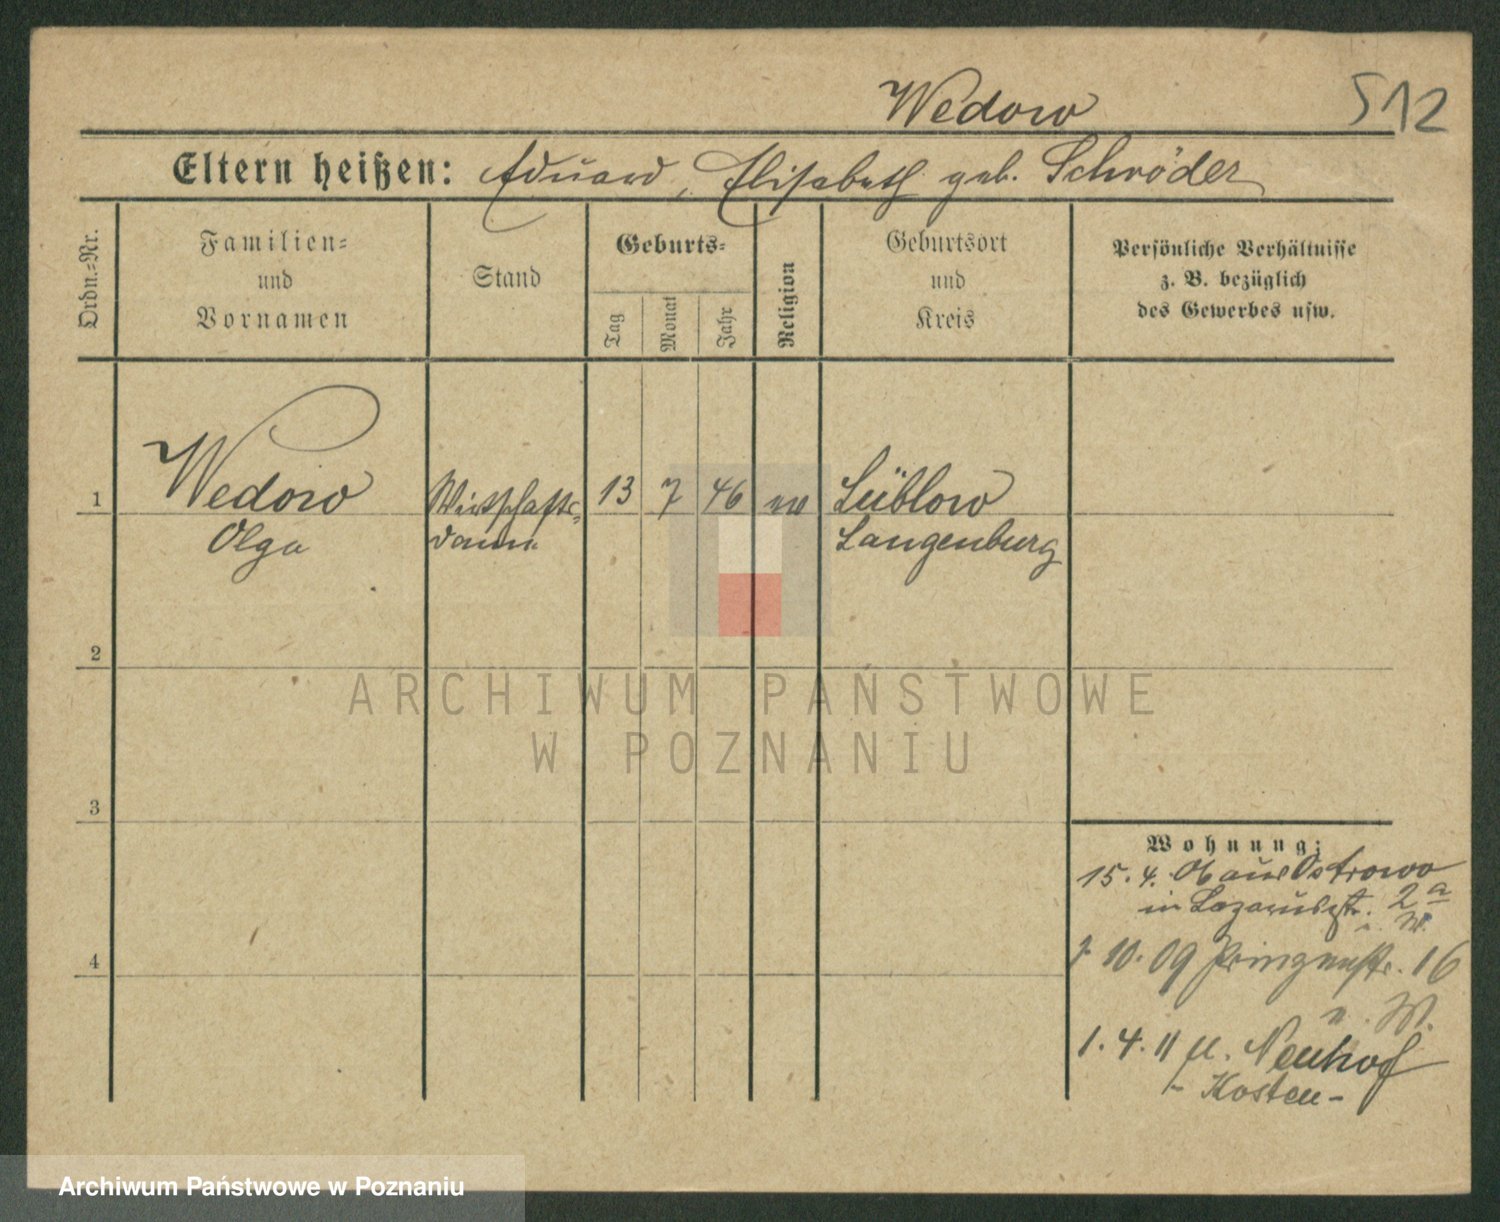 Wedow
512
Eltern heißen: Eduard, Elisabeth geb. Schröder
Ordn.=Nr.
Familien=
und
Vornamen
Stand
Geburts=
Tag
Monat
Jahr
Religion
Geburtsort
und
Kreis
Persönliche Verhältnisse
z. B. bezüglich
des Gewerbes usw.
1
Wedow
Olga
Wirtschafts-
dame
13
7
46
ev
Lüblow
Langenburg
2
3
4
ARCHIWUM PAŃSTWOWE
W POZNANIU
Wohnung:
15. 4. aus Ostrowo
in Lazarusstr. 2a
10. 09 Prinzenstr. 16
1. 4. 11 Neuhof
- Kosten -
Archiwum Państwowe w Poznaniu